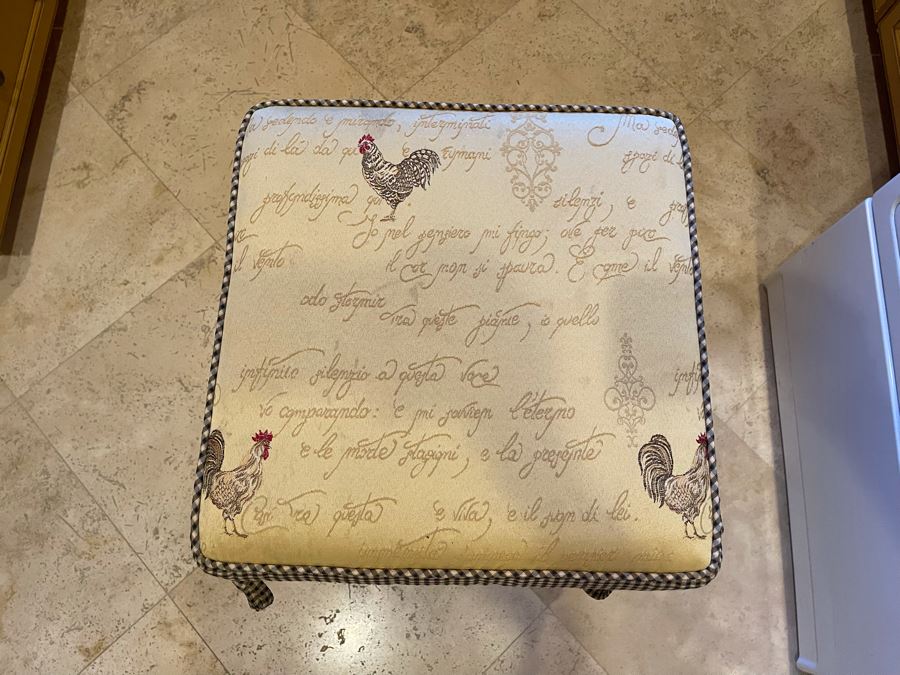 sedendo e mirando, interminati Ma sede
di là da e rumani spazi di l
profondissima silenzi, e
Io nel pensiero mi fingo; ove per poco
il vento il cor non si spaura. E come il vento
odo stormir
tra queste piante, io quello
infinito silenzio a questa voce
vo comparando: e mi sovvien l'eterno
e le morte stagioni, e la presente
e viva, e il suon di lei.